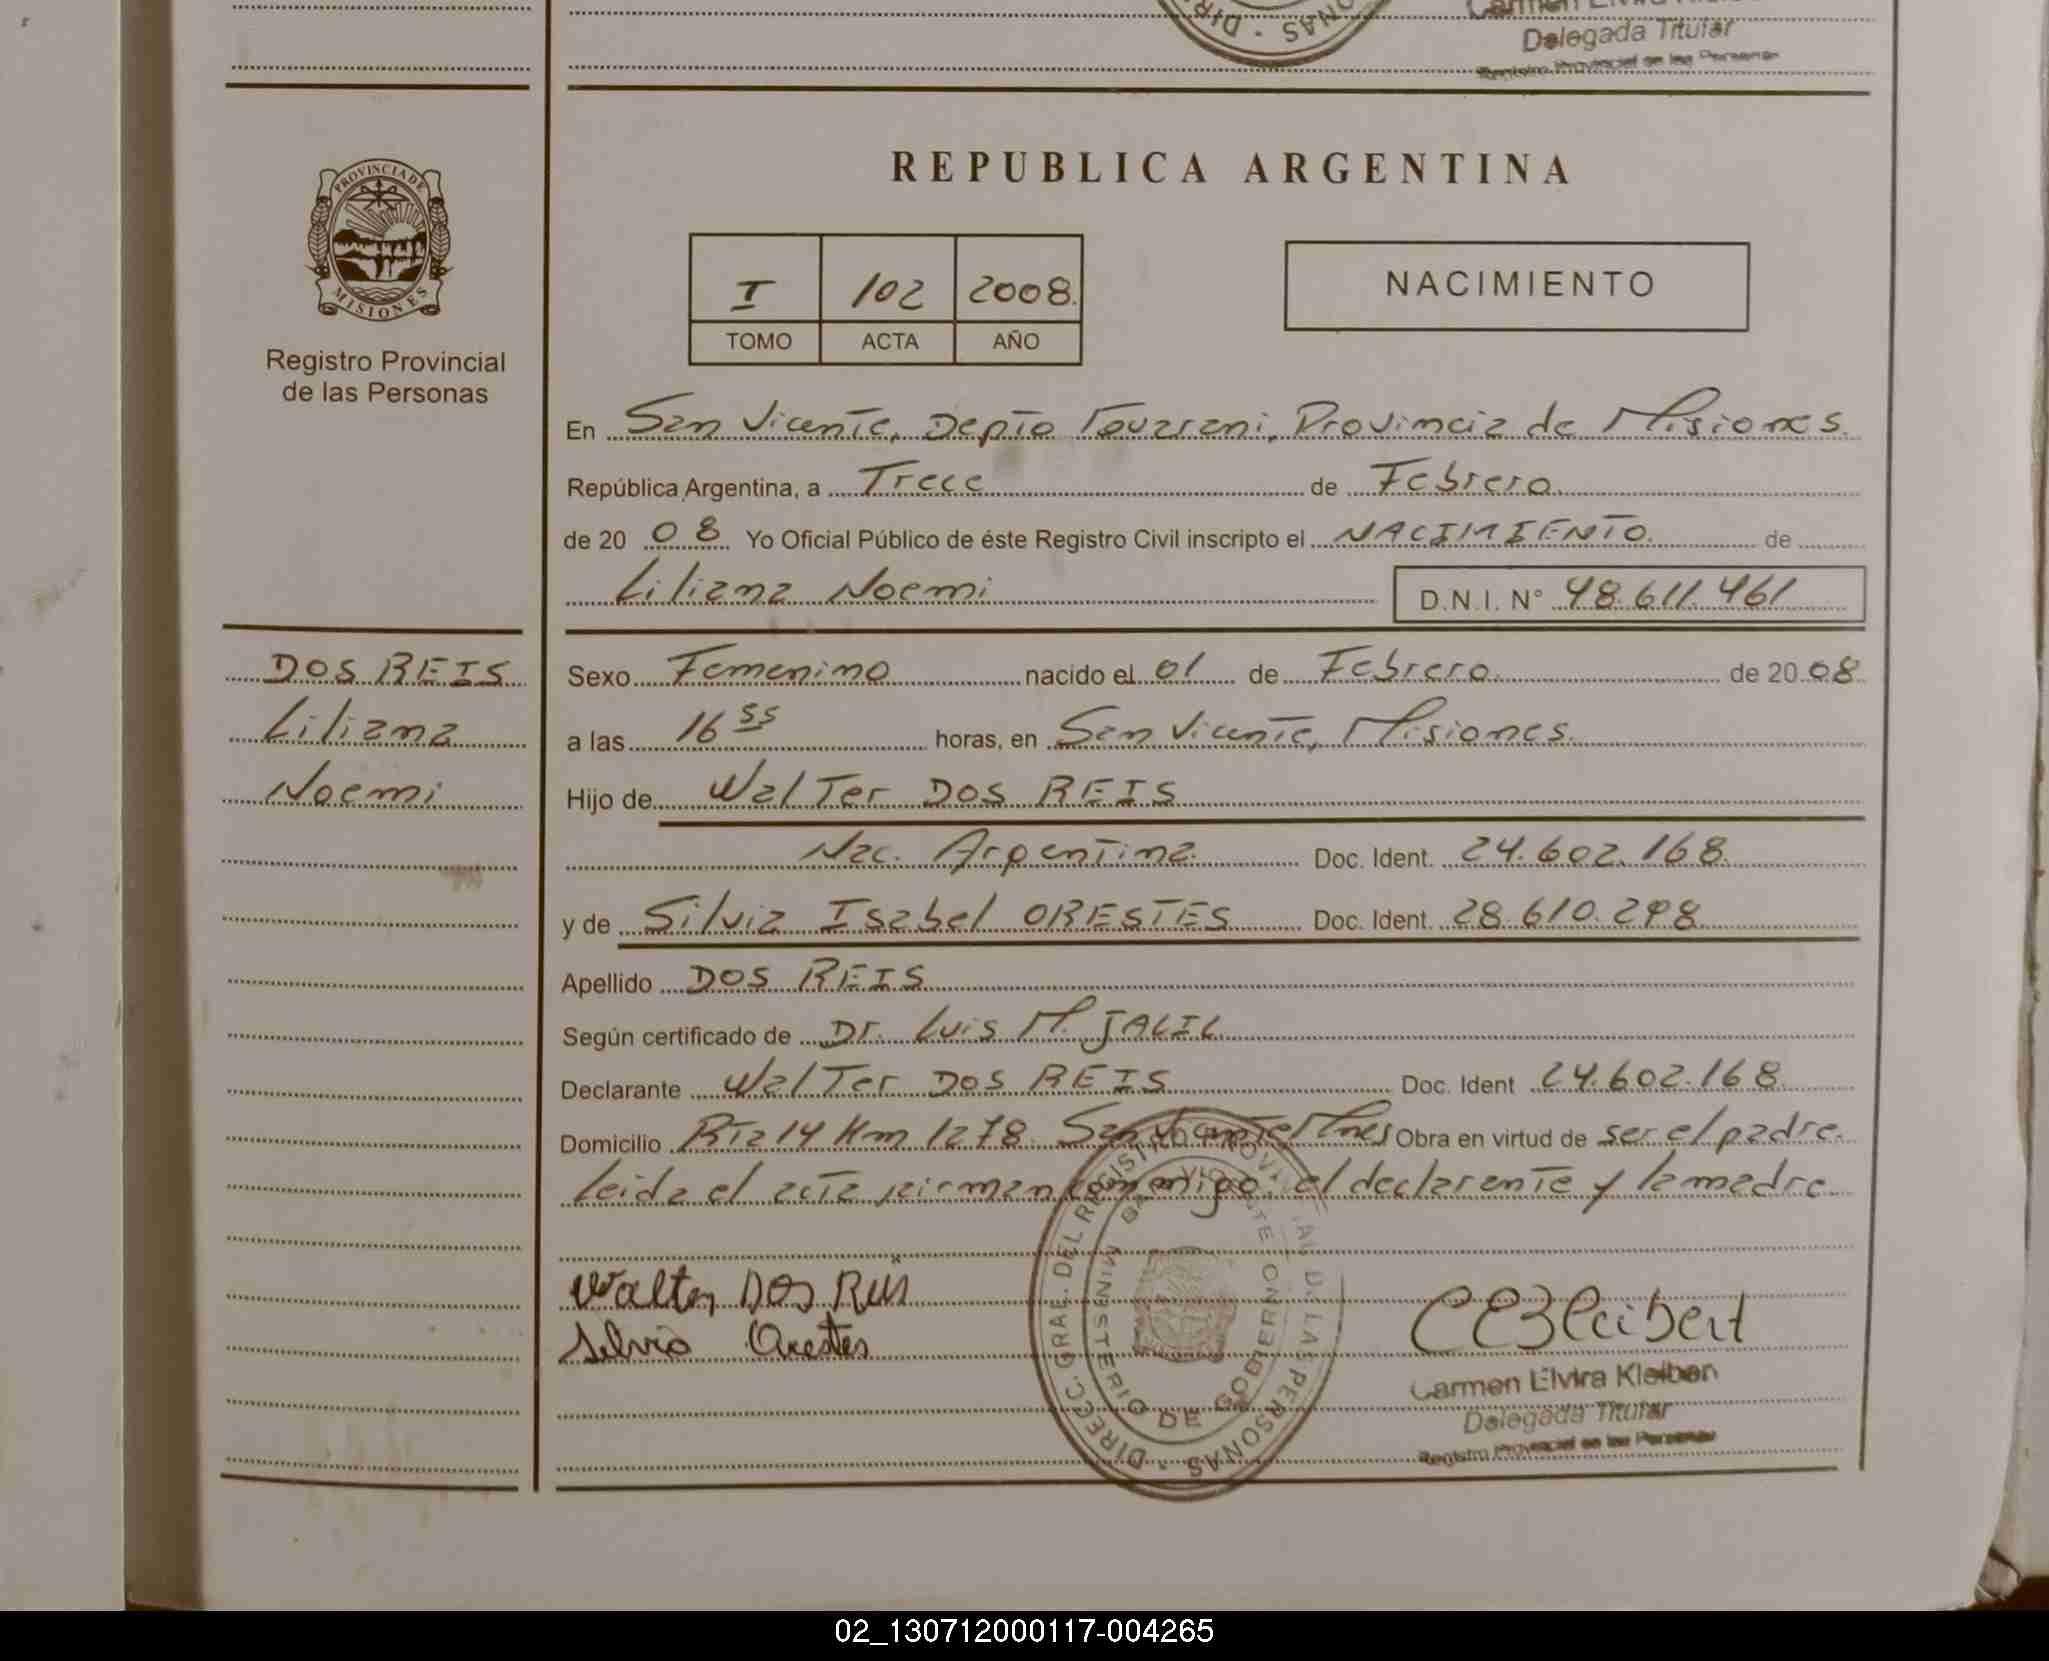 Delegada Titular
Registro Provincial de las Personas
PROVINCIA DE
MISIONES
Registro Provincial
de las Personas
REPUBLICA ARGENTINA
I 102 2008.
TOMO ACTA AÑO
NACIMIENTO
En San Vicente, Depto Guarani, Provincia de Misiones.
República Argentina, a Trece de Febrero
de 20 08 Yo Oficial Público de éste Registro Civil inscripto el NACIMIENTO de
Liliana Noemi D.N.I. N° 48.611.461
DOS REIS
Liliana
Noemi
Sexo Femenino nacido el 01 de Febrero de 20 08
a las 16 55 horas, en San Vicente, Misiones.
Hijo de Walter DOS REIS
Nac. Argentina. Doc. Ident. 24.602.168
y de Silvia Isabel ORESTES Doc. Ident. 28.610.298
Apellido DOS REIS
Según certificado de Dr. Luis M. JALIL
Declarante Walter DOS REIS Doc. Ident 24.602.168
Domicilio Rta 14 Km 1278 San Vicente Mnes Obra en virtud de ser el padre.
Leida el acta firman conmigo, el declarante y la madre.
Walter DOS Reis
Silvia Orestes
DIRECC. GRAL. DEL REGISTRO PROVINCIAL DE LAS PERSONAS
MINISTERIO DE GOBIERNO
Carmen Elvira Kleibert
Delegada Titular
Registro Provincial de las Personas
02_130712000117-004265